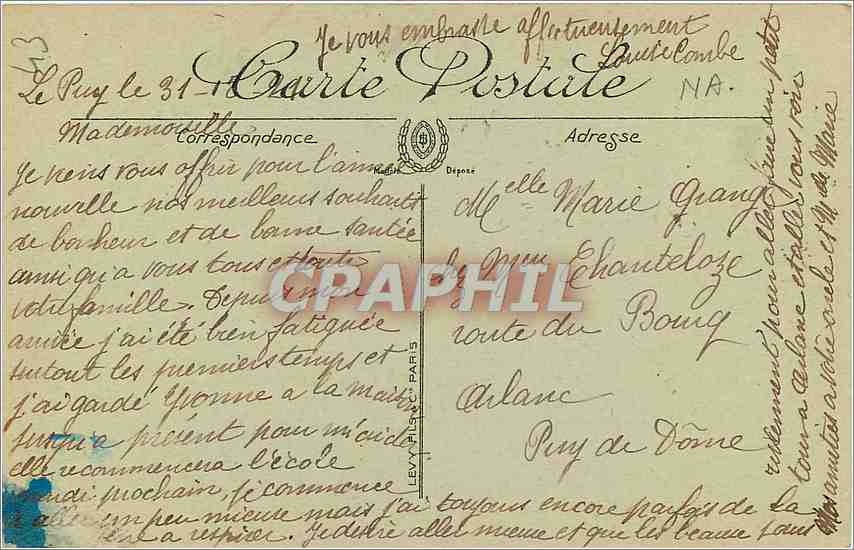 43
Je vous embrasse affectueusement
Louise Combe
Le Puy le 31-
Carte Postale
NA.
Mademoiselle
Correspondance
Modèle Déposé
Adresse
Je viens vous offrir pour l'année
nouvelle nos meilleurs souhaits
de bonheur et de bonne santée
ainsi qu'a vous tous et toute
votre famille. Depuis mon
arrivée j'ai été bien fatiguée
surtout les premiers temps et
j'ai gardé Yvonne a la maison
jusqu'a présent pour m'aider
elle recommencera l'école
lundi prochain, je commence
a aller un peu mieux mais j'ai toujours encore parfois de la
a respirer. Je désire aller mieux et que les beaux jours
viennent pour aller faire un petit
tour a Arlanc et aller vous voir
Mes amitiés a votre oncle et Mme Marie
Melle Marie Grang
chez Mr Chanteloze
route du Bourg
Arlanc
Puy de Dôme
LEVY FILS & Cie PARIS
CPARAMA